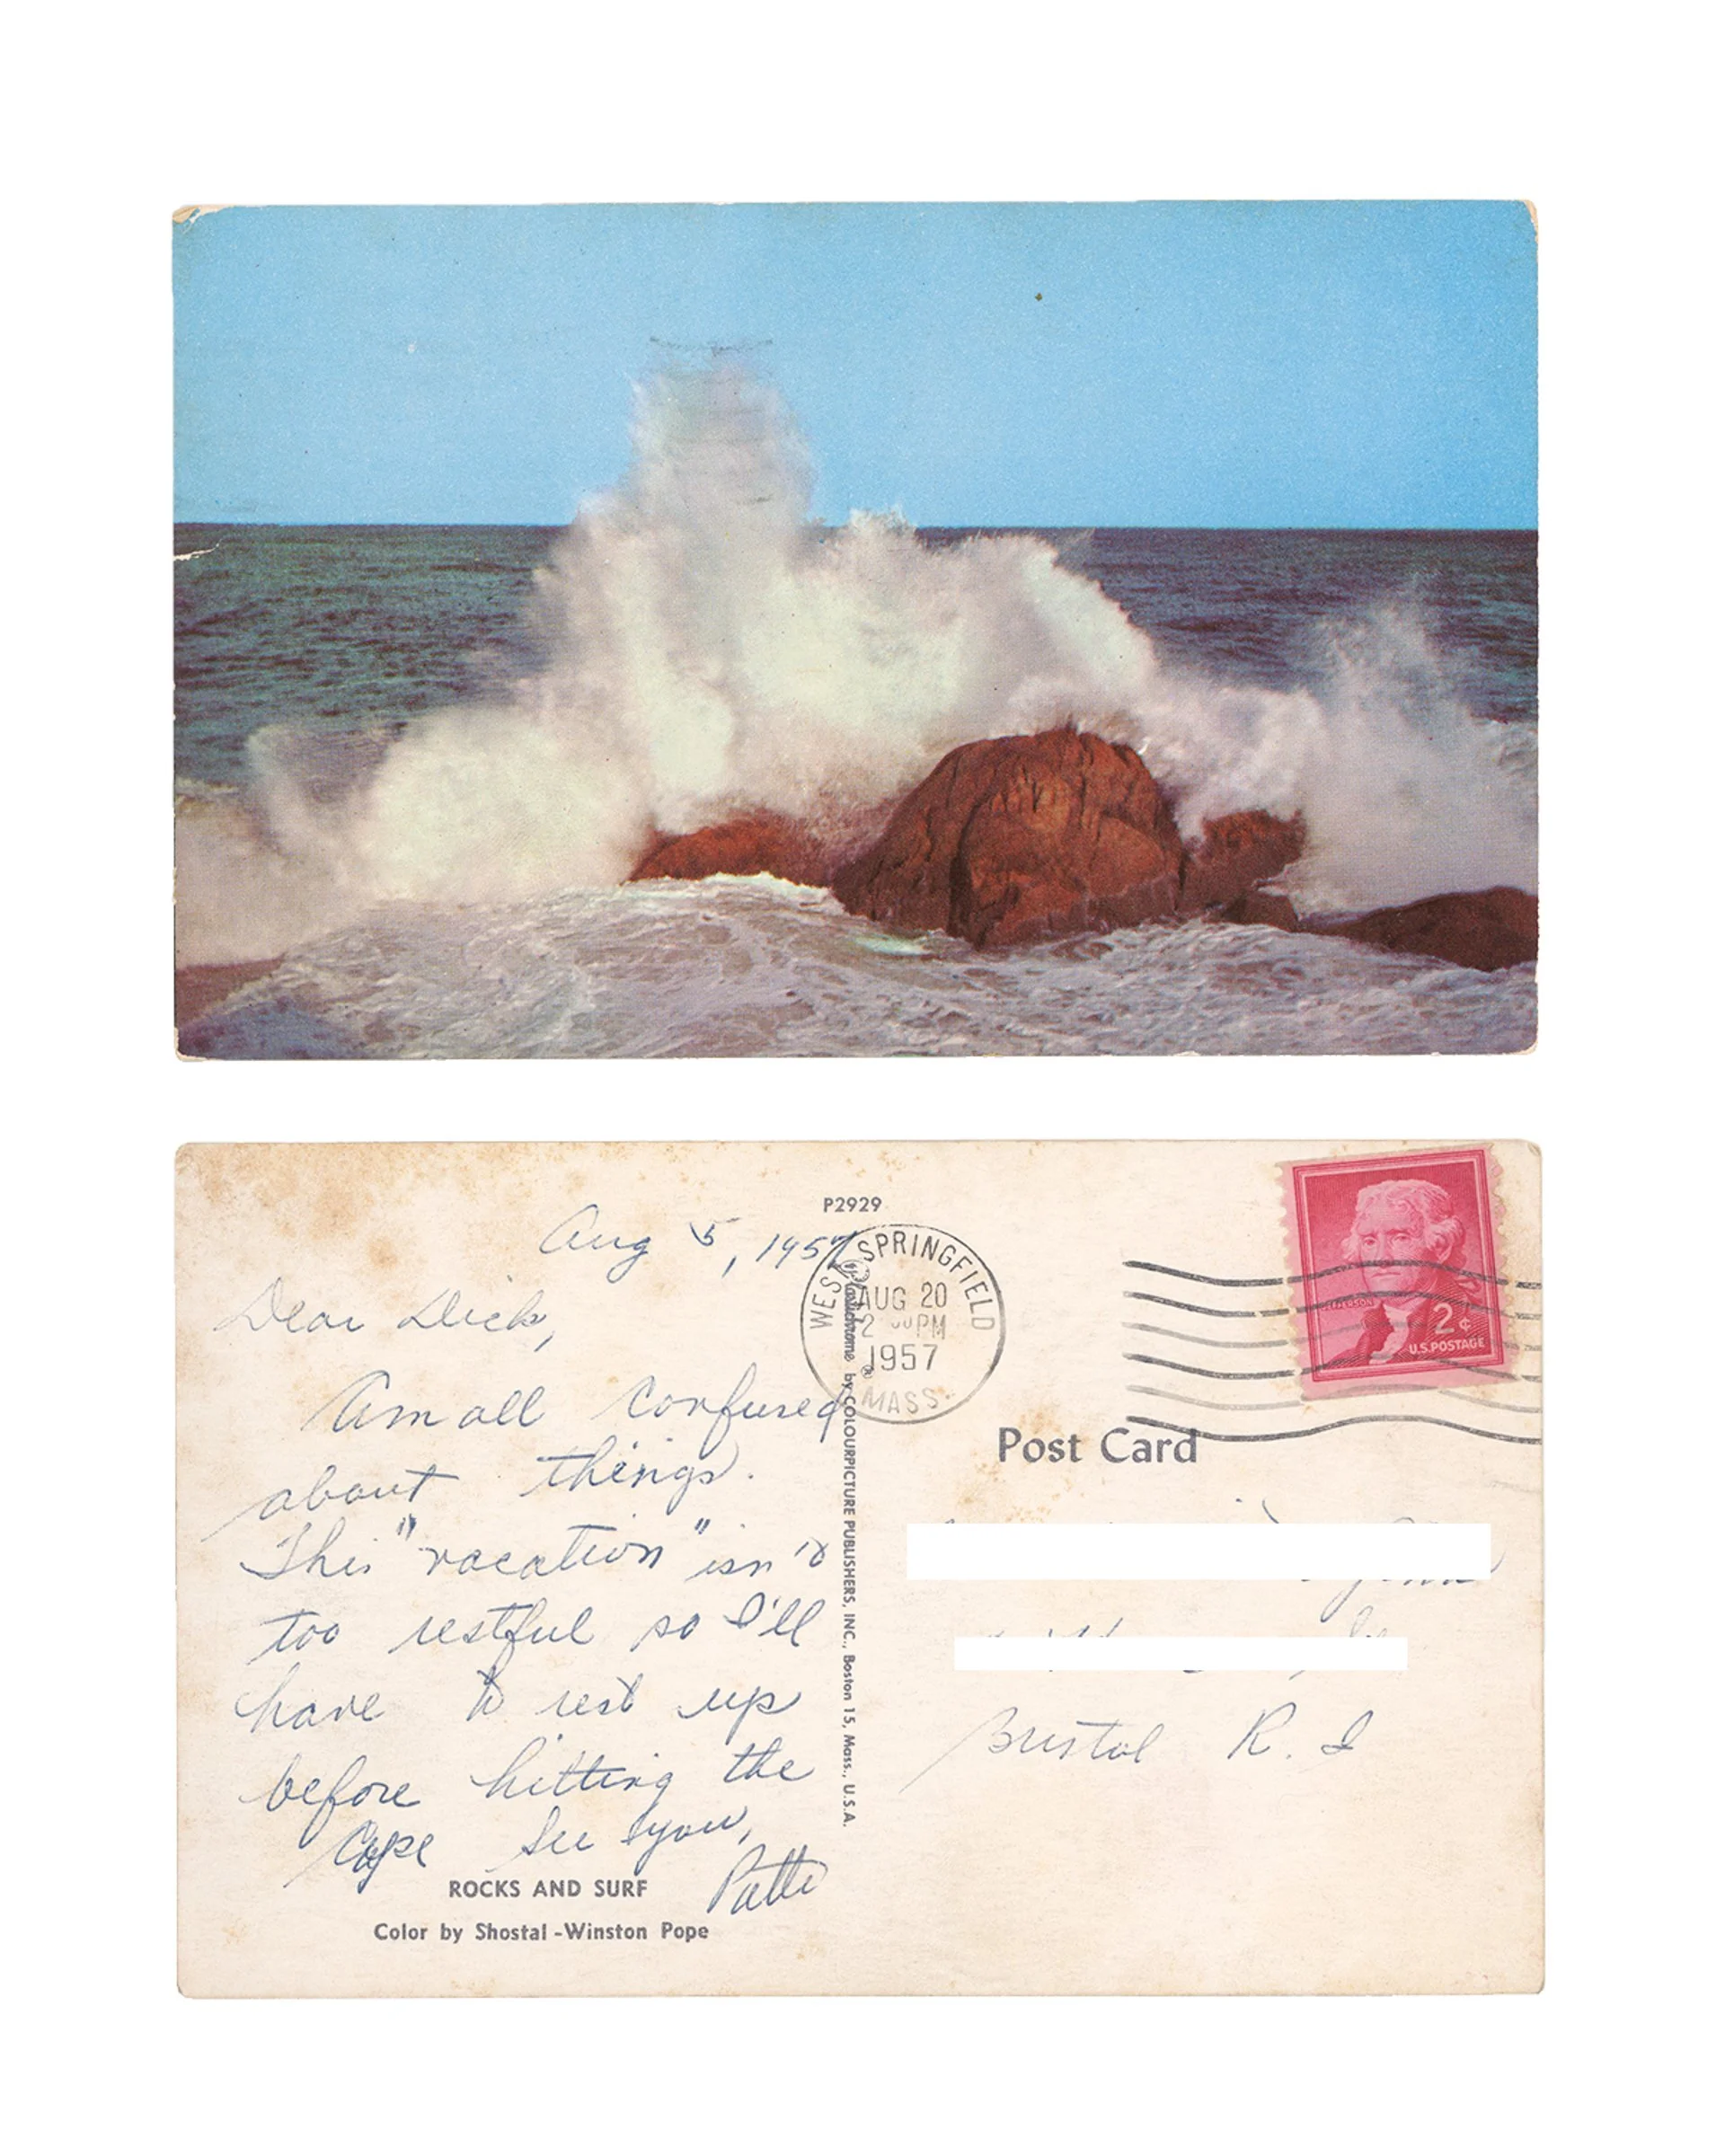 P2929
Aug 5, 1957
Dear Dick,
Am all confused
about things.
This "vacation" isn't
too restful so I'll
have to rest up
before hitting the
Cape See you,
Patti
ROCKS AND SURF
Color by Shostal-Winston Pope
Plastichrome ® by COLOURPICTURE PUBLISHERS, INC., Boston 15, Mass., U.S.A.
WEST SPRINGFIELD
AUG 20
2 00 PM
1957
MASS.
JEFFERSON
2¢
U.S. POSTAGE
Post Card
Bristol R. I